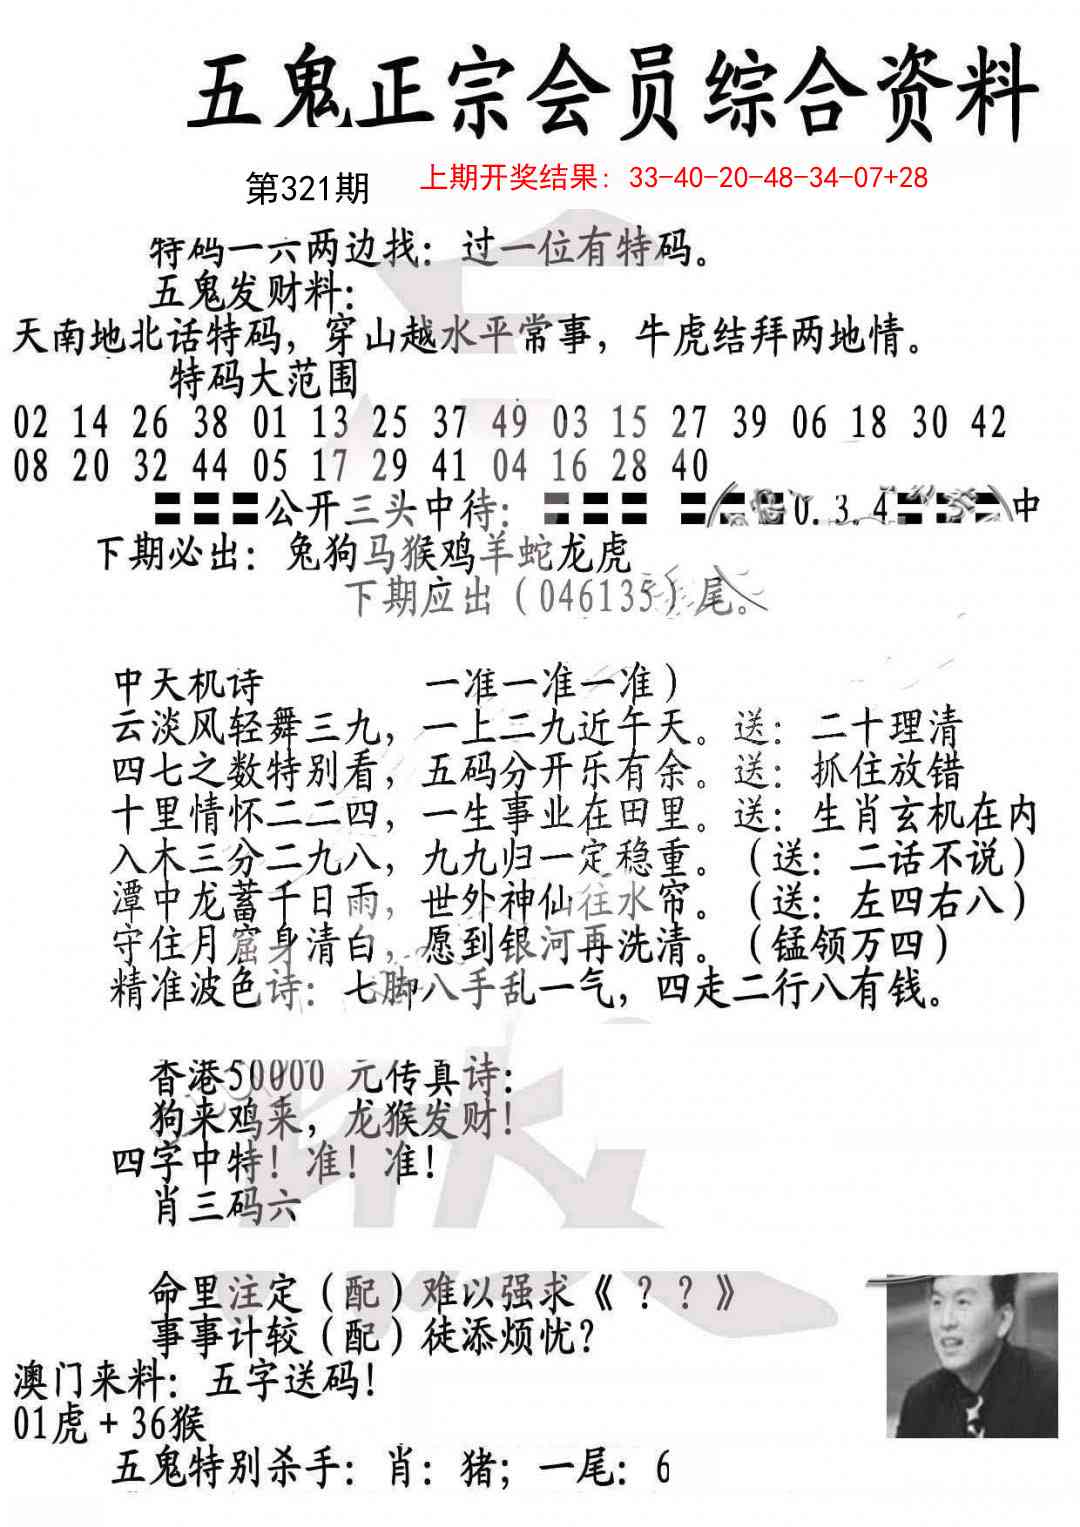 五鬼正宗会员综合资料
第321期
上期开奖结果：33-40-20-48-34-07+28
特码一六两边找：过一位有特码。
五鬼发财料：
天南地北话特码，穿山越水平常事，牛虎结拜两地情。
特码大范围
02 14 26 38 01 13 25 37 49 03 15 27 39 06 18 30 42
08 20 32 44 05 17 29 41 04 16 28 40
公开三头中待：0.3.4 中
下期必出：兔狗马猴鸡羊蛇龙虎
下期应出（046135）尾。
中天机诗 一准一准一准）
云淡风轻舞三九，一上二九近午天。送：二十理清
四七之数特别看，五码分开乐有余。送：抓住放错
十里情怀二二四，一生事业在田里。送：生肖玄机在内
入木三分二九八，九九归一定稳重。（送：二话不说）
潭中龙蓄千日雨，世外神仙往水帘。（送：左四右八）
守住月窟身清白，愿到银河再洗清。（锰领万四）
精准波色诗：七脚八手乱一气，四走二行八有钱。
香港50000 元传真诗：
狗来鸡来，龙猴发财！
四字中特！准！准！
肖三码六
命里注定（配）难以强求《 ？？》
事事计较（配）徒添烦忧？
澳门来料：五字送码！
01虎+36猴
五鬼特别杀手：肖：猪；一尾：6